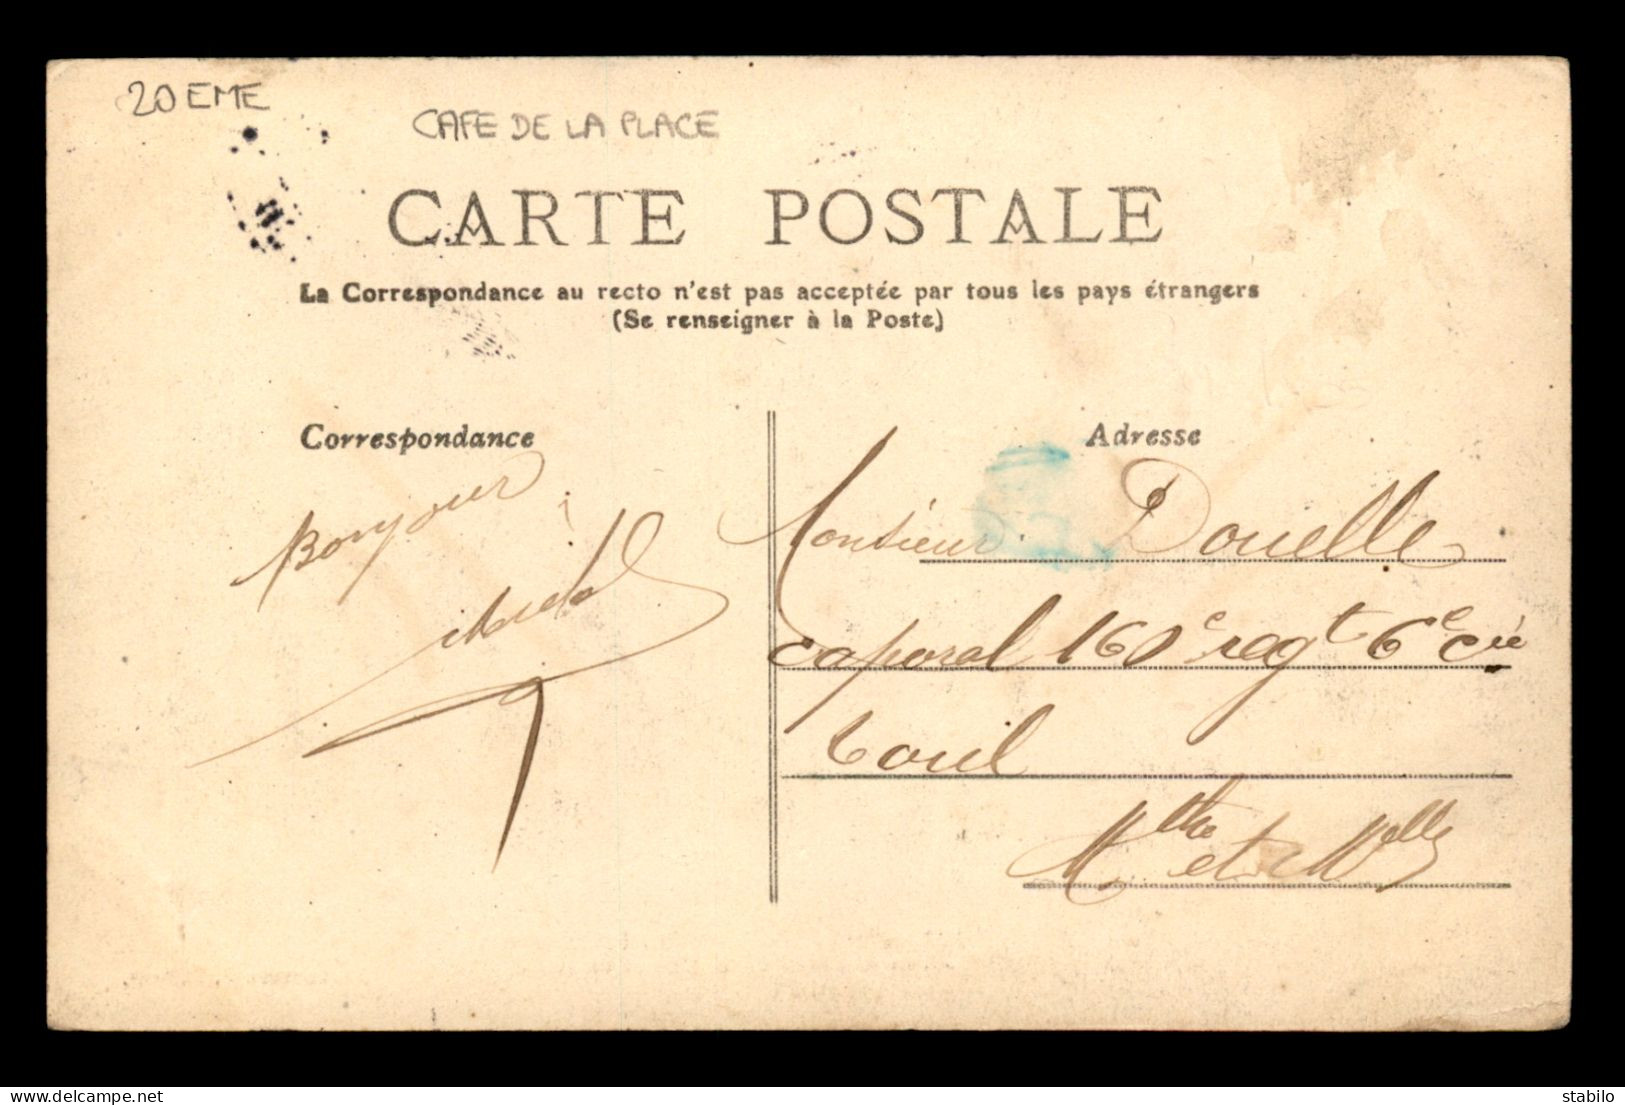 20 EME
CAFE DE LA PLACE
CARTE POSTALE
La Correspondance au recto n'est pas acceptée par tous les pays étrangers
(Se renseigner à la Poste)
Correspondance
Adresse
Bonjour
Monsieur Douelle
caporal 160e regt 6e cie
Toul
Mthe et Mlle
delcampe.net
stabilo